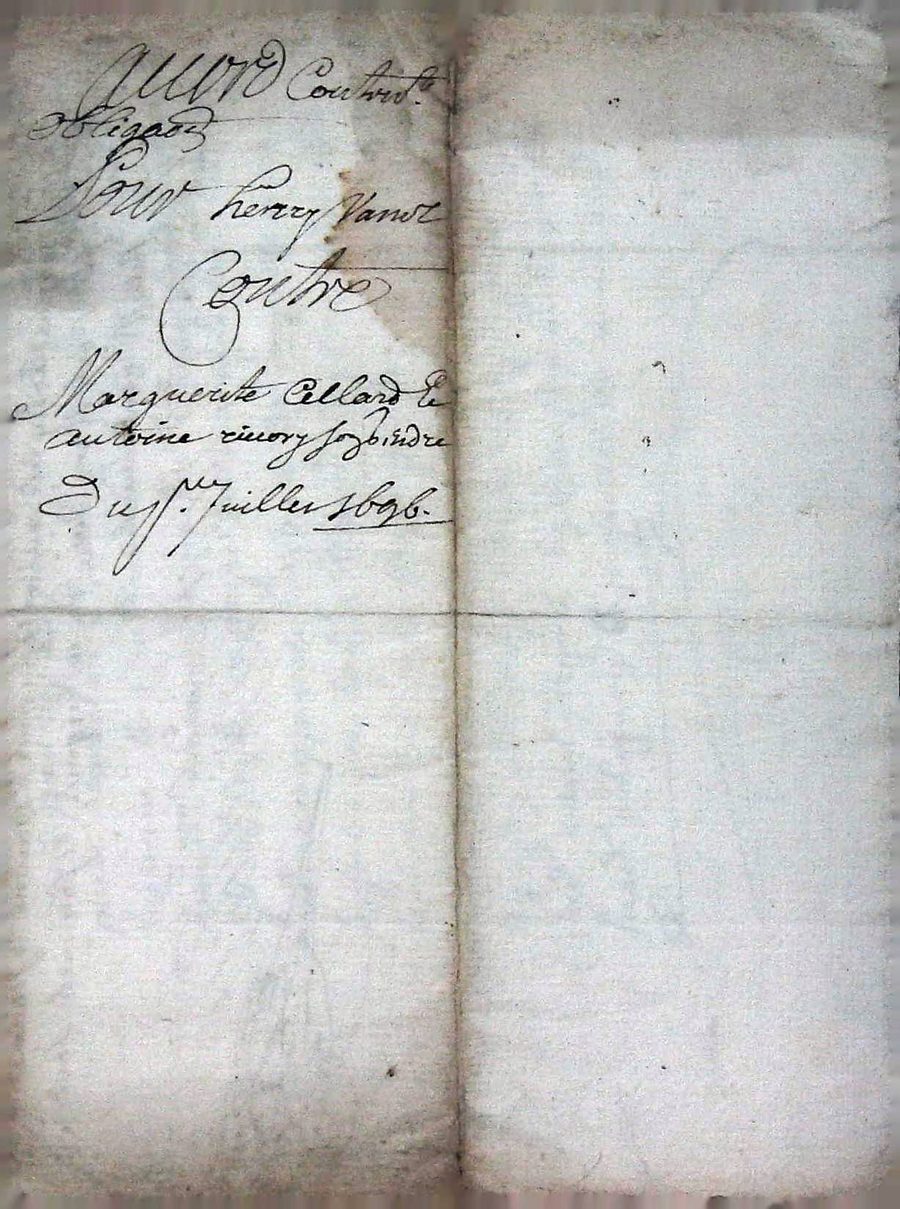 accord Contrat
obligaon
Pour henry Vanot
Contre
Marguerite Cellard Et
antoine riuory son gendre
Du Juillet 1696.